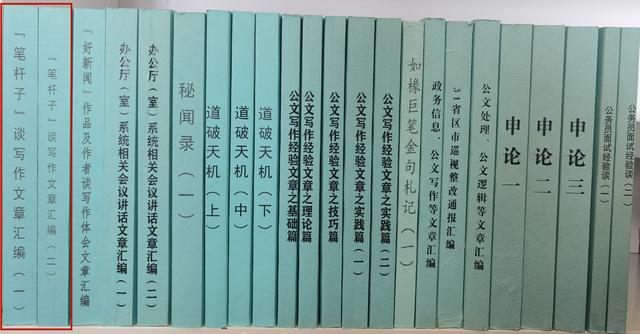 『笔杆子』谈写作文章汇编（一）
『笔杆子』谈写作文章汇编（二）
『好新闻』作品及作者谈写作体会文章汇编
办公厅（室）系统相关会议讲话文章汇编（一）
办公厅（室）系统相关会议讲话文章汇编（二）
秘闻录（一）
道破天机（上）
道破天机（中）
道破天机（下）
公文写作经验文章之基础篇
公文写作经验文章之理论篇
公文写作经验文章之技巧篇
公文写作经验文章之实践篇（一）
公文写作经验文章之实践篇（二）
如椽巨笔金句札记（一）
政务信息、公文写作等文章汇编
31省区市巡视整改通报汇编
公文处理、公文逻辑等文章汇编
申论一
申论二
申论三
公务员面试经验谈（一）
公务员面试经验谈（二）